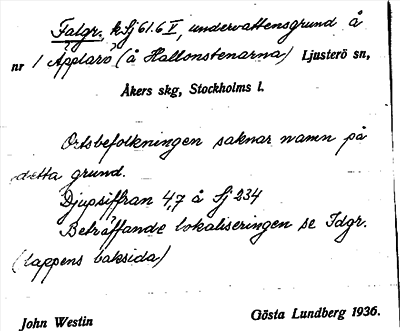 Falgr. kSj 61.6 V, undervattensgrund å
nr 1 Äpplarö (å Hallonstenarna) Ljusterö sn,
Åkers skg, Stockholms l.
Ortsbefolkningen saknar namn på
detta grund.
Djupsiffran 4,7 å Sj 234
Beträffande lokaliseringen se Idgr.
(lappens baksida)
John Westin
Gösta Lundberg 1936.